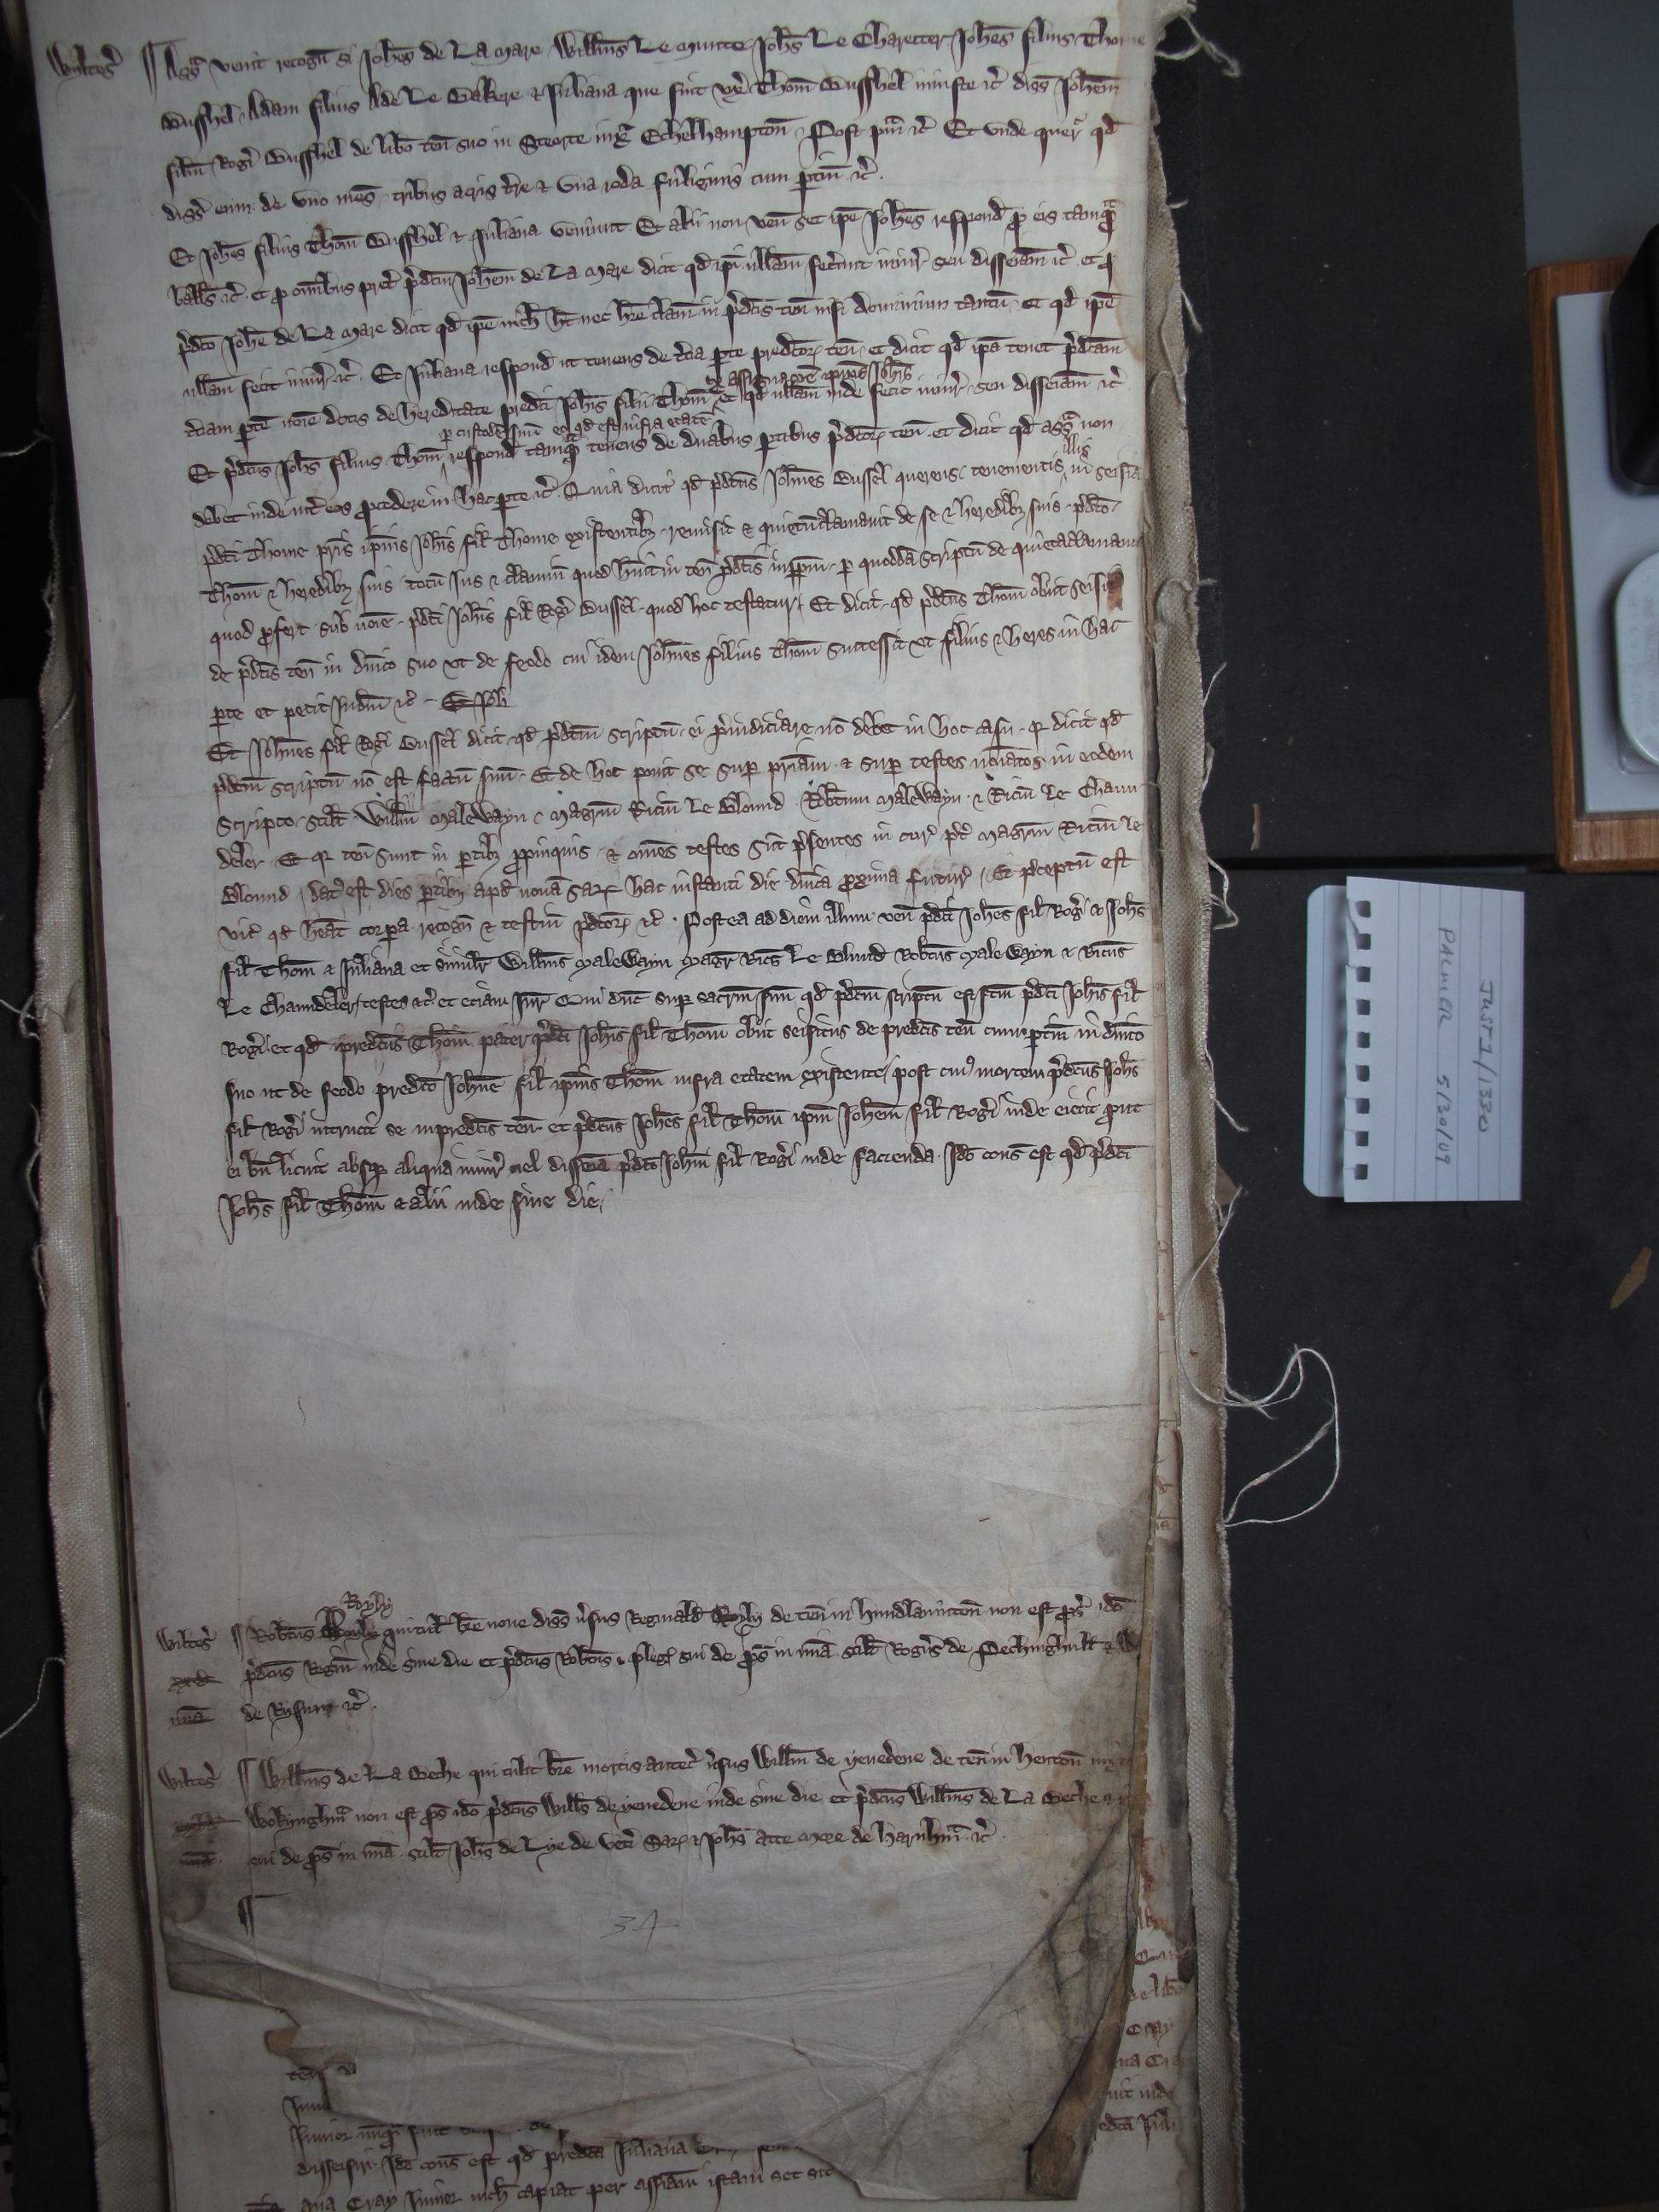 Wyltes' ¶ Ass̄a venit recogn̄ si Joh̄es de La Mare Will̄ms Le Munter Joh̄s Le Charetter Joh̄es filius Thome
Busshel Adam filius Ade Le Bakere & Juliana que fuit ux̄ Thom̄ Busshel iniuste &c̄ diss̄ Joh̄em
filiū Roḡi Busshel de lib̄o ten̄ suo in Steorte iux̄ Echelhampton̄ Post p̄m̄ &c̄ Et unde quer̄ qd̄
diss̄ eum de uno mes̄ tribus acris t̄re & una roda cum p̄tin̄ &c̄.
Et Joh̄es filius Thom̄ Busshel & Juliana veniunt Et alii non ven̄ set ip̄e Joh̄es respond̄ p̄ eis tamq̄
ball̄s &c̄ et p̄ om̄ibus pret̄ p̄dc̄m Joh̄em de La Mare dicit qd̄ ip̄i ullam fec̄unt iniur̄ seu disseiam̄ &c̄ et p̄
p̄dc̄o Joh̄e de La Mare dicit qd̄ ip̄e nich̄ h̄t nec h̄re clam̄ in p̄dc̄is ten̄ nisi dominium tantū et qd̄ ip̄e
ullam fecit iniur̄ &c̄. Et Juliana respond̄ ut tenens de t̄cia p̄te predc̄oꝝ ten̄ et dicit qd̄ ip̄a tenet p̄dc̄am
ex assignac̄oe ip̄ius Joh̄is
t̄ciam p̄te noīe dotis de hereditate predc̄i Joh̄is filii Thom̄ et qd̄ ullam inde fecit iniur̄ seu disseiam̄ &c̄
p̄ custodē suū eo qd̄ est infra etatē
Et p̄dc̄us Joh̄s filius Thom̄ respond̄ tamq̄ tenens de duabus p̄tibus p̄dc̄oꝝ ten̄ et dicit qd̄ ass̄a non
illis
debet inde int̄ eos p̄cedere in hac p̄te &c̄. Quia dicit qd̄ p̄dc̄us Joh̄nes Bussel querens tenementis in seisia
p̄dc̄i Thome pr̄is ip̄ius Joh̄is fil̄ Thome existentibꝫ remisit & quietū clamavit de se & heredibꝫ suis p̄dc̄o
Thom̄ & heredibꝫ suis totū ius & clamiū quod h̄uit in ten̄ p̄dc̄is inp̄p̄m p̄ quoddā scriptū de quietaclamanc̄
quod p̄fert sub noīe p̄dc̄i Joh̄is fil̄ Roḡi Bussel quod hoc testatur Et dicit qd̄ p̄dc̄us Thom̄ obiit seisit
de p̄dc̄is ten̄ in dn̄ico suo ut de feodo cui idem Joh̄nes filius Thom̄ successit ut filius & heres in hac
p̄te et petit Judm̄ &c̄ Et Joh
Et Joh̄nes fil̄ Roḡi Bussel dicit qd̄ p̄dc̄m scriptū ei p̄iudiciare nō debet in hoc casu qꝛ dicit qd̄
p̄dc̄m scriptū nō est factū suū Et de hoc ponit se sup̄ pr̄iam & sup̄ testes noīatos in eodem
scripto scilt̄ Will̄m Malewayn & Magr̄m Ric̄m Le Blound Rob̄tum Malewayn & Ric̄m Le Chaun
deler Et qꝛ ten̄ sunt in p̄tibꝫ p̄pinquis & om̄es testes sūt p̄sentes in cur̄ p̄t̄ Magr̄m Ric̄m le
Blound datꝰ est dies p̄tibꝫ apd̄ novā Saꝝ hac instanti die dn̄ica p̄xima futur̄ Et p̄ceptū est
vic̄ qd̄ h̄eat corpora recogn̄ & testiū p̄dc̄oꝝ &c̄. Postea ad diem illum ven̄ p̄dc̄i Joh̄es fil̄ Roḡi & Joh̄s
fil̄ Thom̄ & Juliana et simil̄r Will̄ms Malewayn Magr̄ Ric̄s Le Blund Rob̄tus Malewayn & Ric̄us
Le Chaundeler testes &c̄ et eciam Jur̄ Qui dn̄t sup̄ sacr̄m suū qd̄ p̄dc̄m scriptū est fc̄m p̄dc̄i Joh̄is fil̄
Roḡi et qd̄ predc̄us Thom̄ pater p̄dc̄i Joh̄is fil̄ Thom̄ obiit seisitus de predc̄is ten̄ cum p̄tin̄ in dn̄ico
suo ut de feodo predc̄o Joh̄ne fil̄ ip̄ius Thom̄ infra etatem existente post cuiꝰ mortem p̄dc̄us Joh̄s
fil̄ Roḡi intrusit se in predc̄is ten̄ et p̄dc̄us Joh̄es fil̄ Thom̄ ip̄m Joh̄em fil̄ Roḡi inde eiecit prout
ei bn̄ licuit absqꝫ aliqua iniur̄ vel disseia p̄dc̄o Joh̄i fil̄ Roḡi inde facienda. Id̄o cons̄ est qd̄ p̄dc̄i
Joh̄s fil̄ Thom̄ & alii inde sine die
Boyly
Wiltes' ¶ Rob̄tus Boyly qui tul̄ br̄e nove diss̄ v̄sus Reginald̄ Boyly de ten̄ in Hundlavinton̄ non est p̄s̄ id̄o
p̄dc̄us Regin̄ inde sine die et p̄dc̄us Rob̄tus & pleḡ sui de p̄s̄ in mīa scilt̄ Roḡus de Pechinghull &
mīa de &c̄.
Wiltes' ¶ Will̄ms de La Beche qui tulit br̄e mortis antec̄ v̄sus Will̄m de Yevedene de ten̄ in Henton̄
Wokynghm̄ non est p̄s̄ id̄o p̄dc̄us Will̄s de Yevedene inde sine die et p̄dc̄us Will̄ms de La Beche
mīa sui de p̄s̄ in mīa scilt̄ Joh̄s de Lye de vet̄i Saꝝ & Joh̄s atte Mere de Harnhm̄ &c̄
¶
34
ten̄
Junior
disseisin̄ Id̄o cons̄ est qd̄ predc̄a Juliana
ana Cray Junior nich̄ capiat per assiām istam set
JUST 1/1330
PALMER 5/30/09